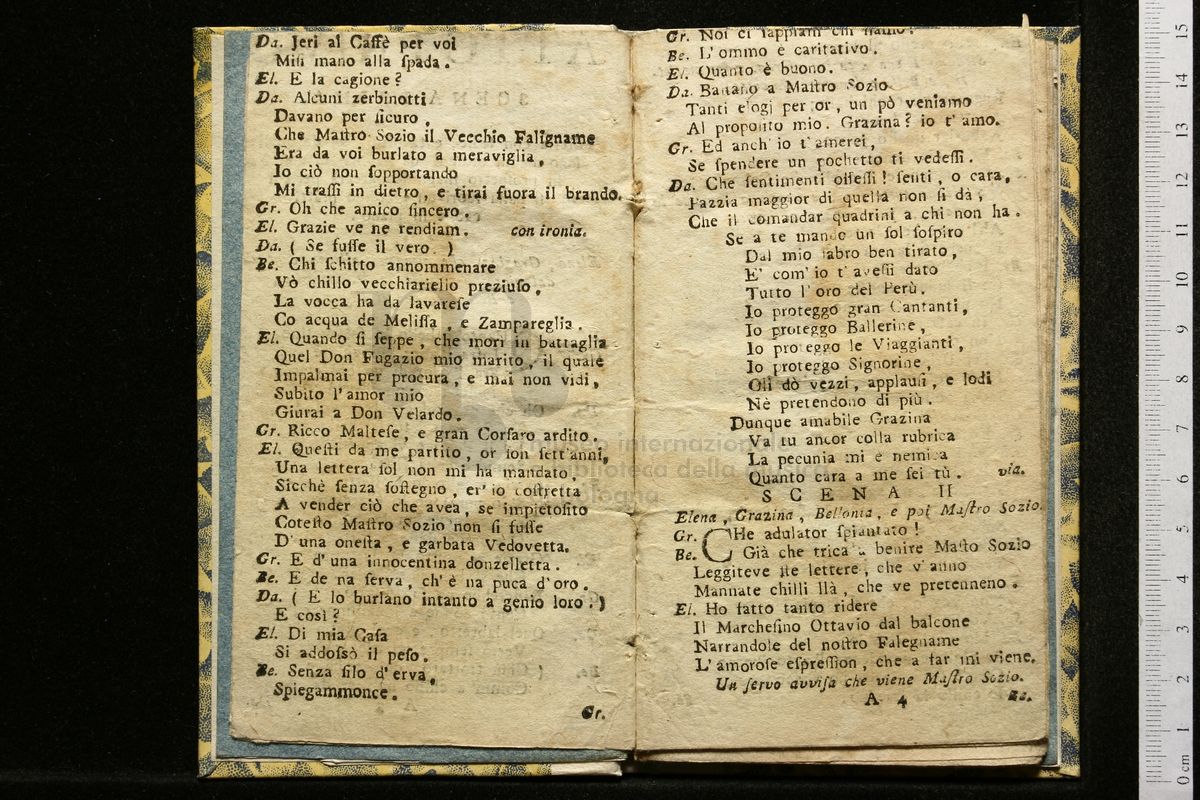 Da. Jeri al Caffè per voi
Misi mano alla spada.
El. E la cagione?
Da. Alcuni zerbinotti
Davano per sicuro,
Che Mastro Sozio il Vecchio Faligname
Era da voi burlato a meraviglia,
Io ciò non sopportando
Mi trassi in dietro, e tirai fuora il brando.
Gr. Oh che amico sincero.
El. Grazie ve ne rendiam. con ironia.
Da. ( Se fusse il vero. )
Be. Chi schitto annommenare
Vò chillo vecchiariello preziuso,
La vocca ha da lavarese
Co acqua de Melissa, e Zampareglia.
El. Quando si seppe, che morì in battaglia
Quel Don Fugazio mio marito, il quale
Impalmai per procura, e mai non vidi,
Subito l'amor mio
Giurai a Don Velardo.
Gr. Ricco Maltese, e gran Corsaro ardito.
El. Questi da me partito, or son sett'anni,
Una lettera sol non mi ha mandato,
Sicchè senza sostegno, er'io costretta
A vender ciò che avea, se impietosito
Cotesto Mastro Sozio non si fusse
D'una onesta, e garbata Vedovetta.
Gr. E d'una innocentina donzelletta.
Be. E de na serva, ch'è na puca d'oro.
Da. ( E lo burlano intanto a genio loro. )
E così?
El. Di mia Casa
Si addossò il peso.
Be. Senza filo d'erva,
Spiegammonce.
Gr.
Gr. Noi ci sappiam chi siamo!
Be. L'ommo è caritativo.
El. Quanto è buono.
Da. Bastano a Mastro Sozio
Tanti elogi per or, un pò veniamo
Al proposito mio. Grazina? io t'amo.
Gr. Ed anch'io t'amerei,
Se spendere un pochetto ti vedessi.
Da. Che sentimenti ossessi! senti, o cara,
Pazzia maggior di quella non si dà,
Che il comandar quadrini a chi non ha.
Se a te mando un sol sospiro
Dal mio labro ben tirato,
E' com'io t'avessi dato
Tutto l'oro del Perù.
Io proteggo gran Cantanti,
Io proteggo Ballerine,
Io proteggo le Viaggianti,
Io proteggo Signorine,
Gli dò vezzi, applausi, e lodi
Nè pretendono di più.
Dunque amabile Grazina
Va tu ancor colla rubrica
La pecunia mi è nemica
Quanto cara a me sei tù. via.
SCENA II
Elena, Grazina, Bellonia, e poi Mastro Sozio.
Gr. CHe adulator spiantato!
Be. Già che trica a benire Masto Sozio
Leggiteve ste lettere, che v'anno
Mannate chilli llà, che ve pretenneno.
El. Ho fatto tanto ridere
Il Marchesino Ottavio dal balcone
Narrandole del nostro Falegname
L'amorose espression, che a far mi viene.
Un servo avvisa che viene Mastro Sozio.
A 4
Be.
museo internazionale
biblioteca della musica
bologna